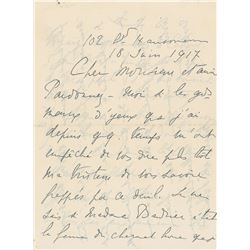 102 Bd Haussmann
18 Juin 1917.
Cher Monsieur et ami
Pardonnez-moi de les gds
maux d'yeux que j'ai
depuis qq temps m'ont
empêché de vous dire plus tôt
ma tristesse de vous savoir
frappés par ce deuil. Je ne
sais si Madame
la femme du